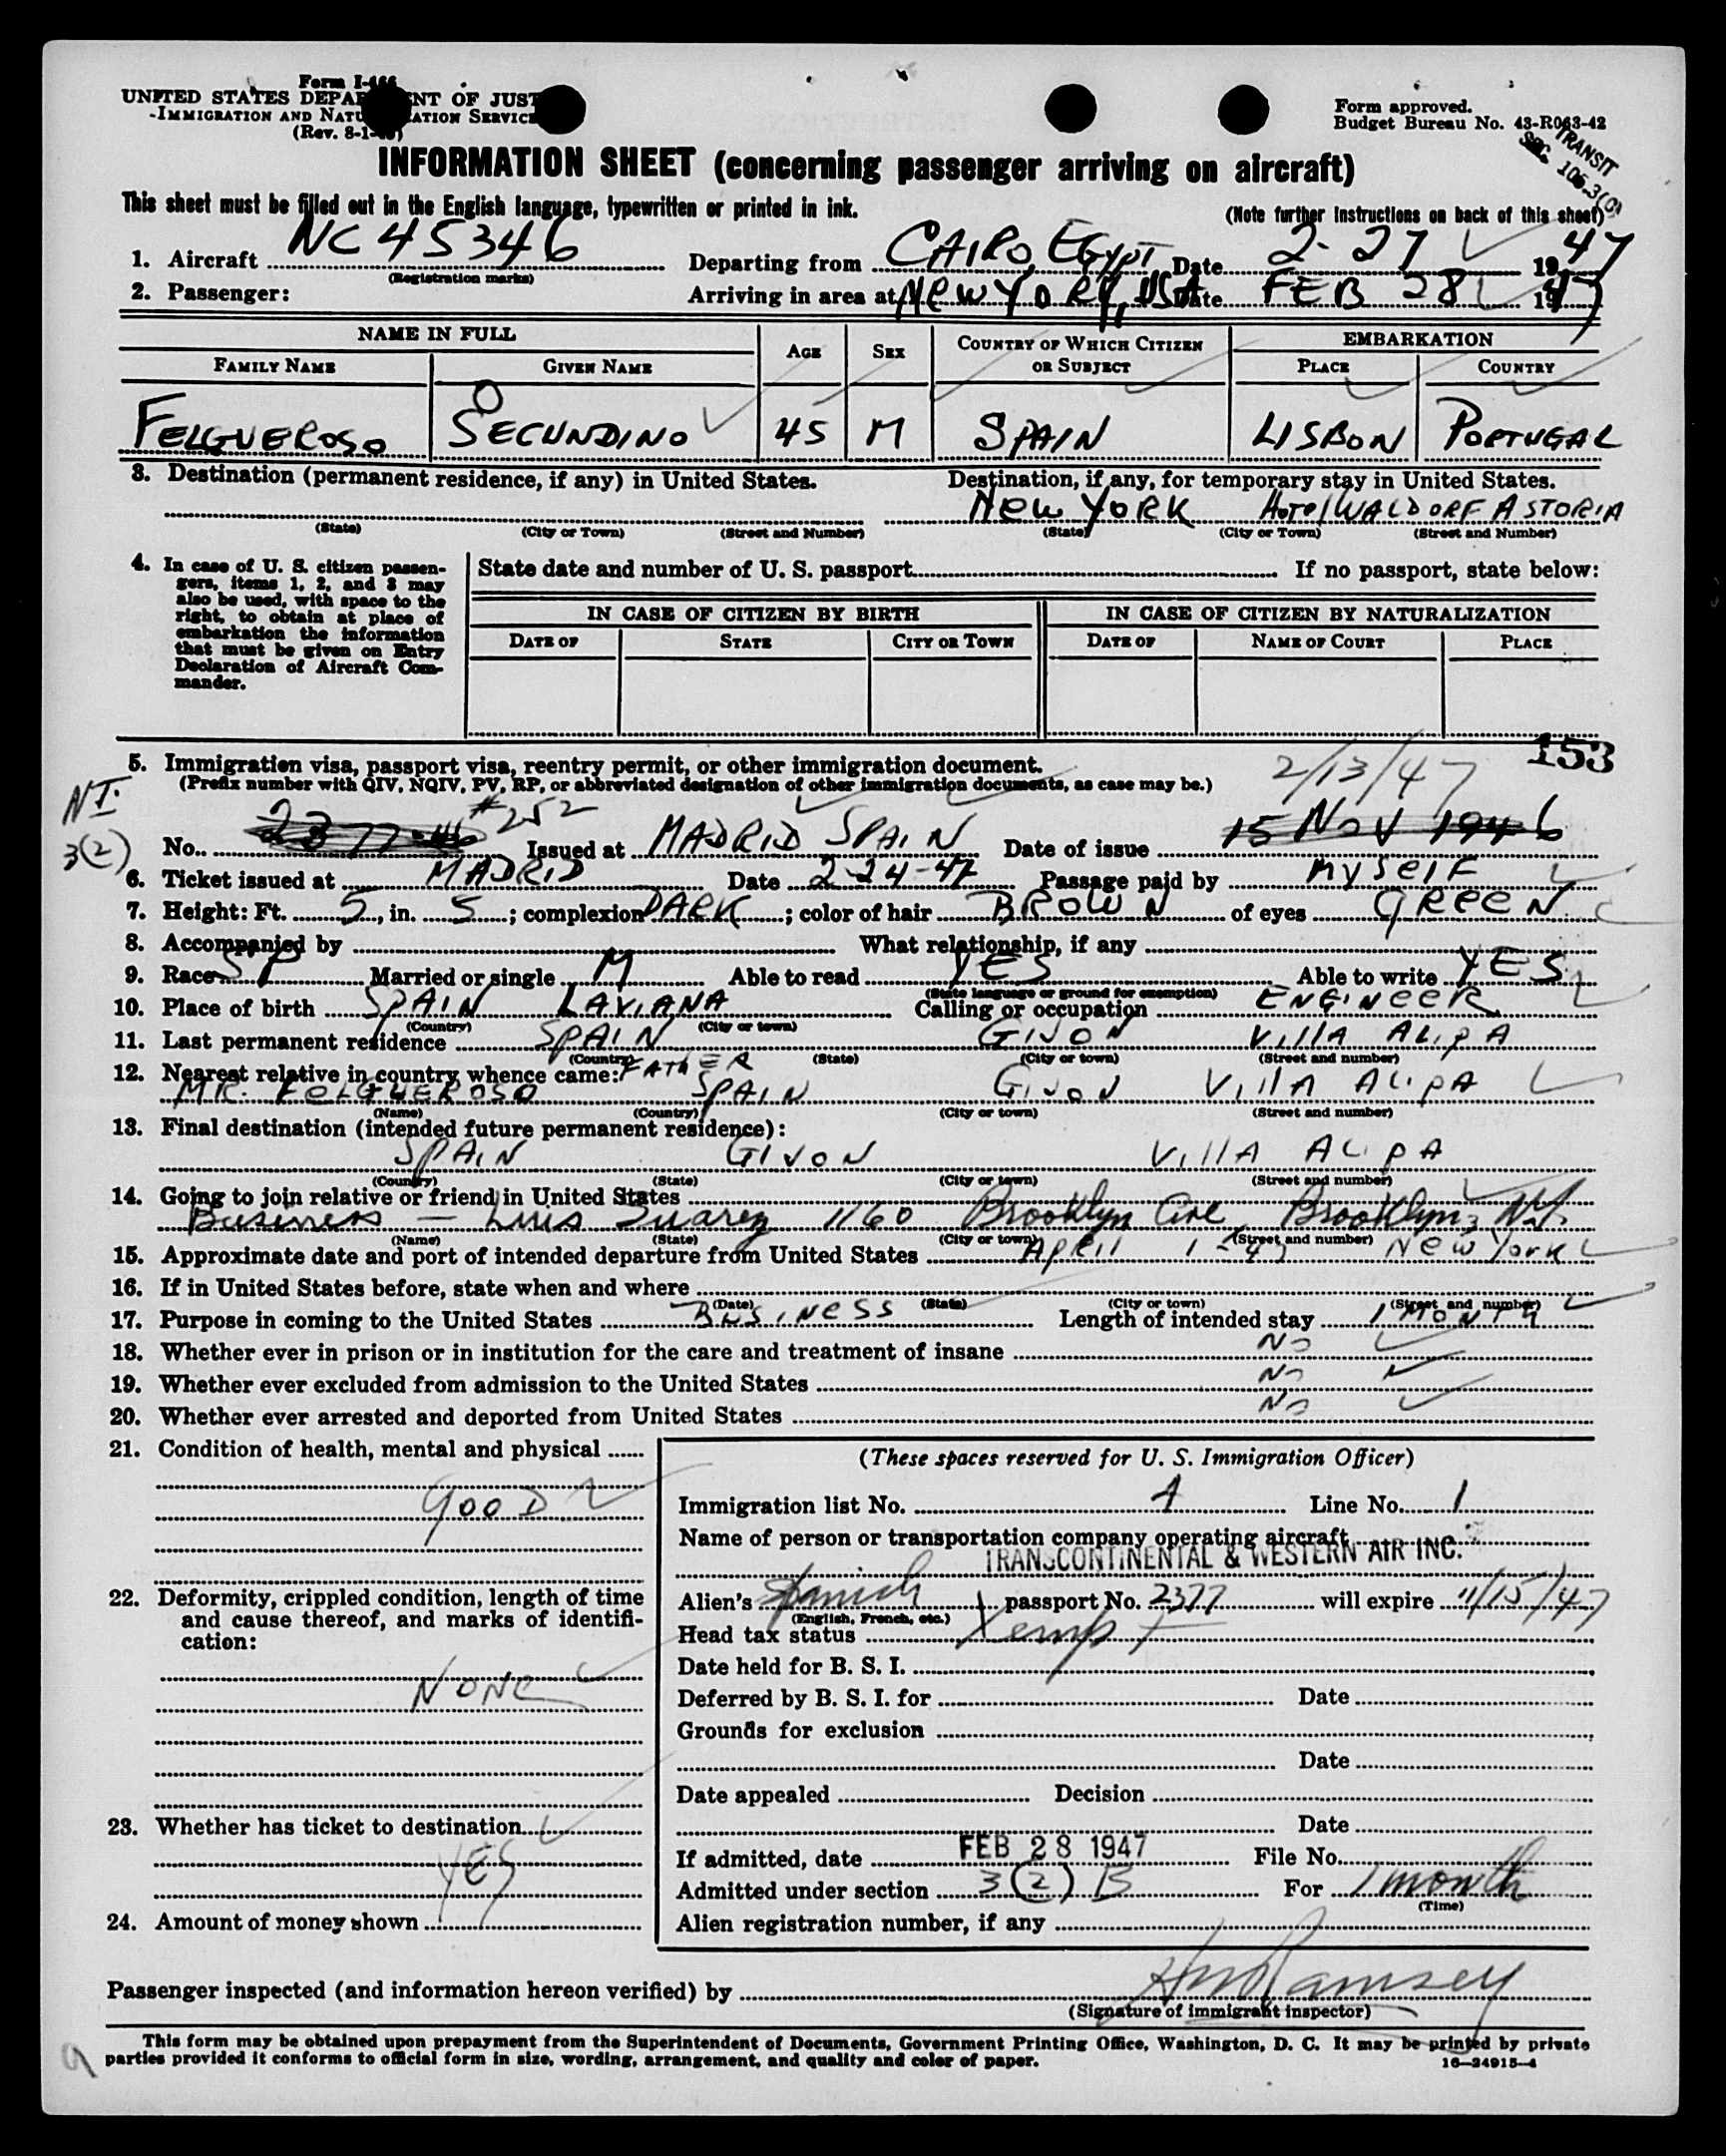 Form I-466
UNITED STATES DEPARTMENT OF JUSTICE
IMMIGRATION AND NATURALIZATION SERVICE
(Rev. 8-1-
Form approved.
Budget Bureau No. 43-R063-42
TRANSIT
SEC. 105.3(c)
INFORMATION SHEET (concerning passenger arriving on aircraft)
This sheet must be filled out in the English language, typewritten or printed in ink.
(Note further instructions on back of this sheet)
1. Aircraft NC 45346 Departing from CAIRO, EGYPT Date 2-27 1947
(Registration marks)
2. Passenger: Arriving in area at NEW YORK, USA Date FEB 28 1947
NAME IN FULL AGE SEX COUNTRY OF WHICH CITIZEN OR SUBJECT EMBARKATION
FAMILY NAME GIVEN NAME PLACE COUNTRY
FELGUEROSO SECUNDINO 45 M SPAIN LISBON PORTUGAL
3. Destination (permanent residence, if any) in United States. Destination, if any, for temporary stay in United States.
New YORK Hotel WALDORF ASTORIA
(State) (City or Town) (Street and Number) (State) (City or Town) (Street and Number)
4. In case of U. S. citizen passengers, items 1, 2, and 3 may also be used, with space to the right, to obtain at place of embarkation the information that must be given on Entry Declaration of Aircraft Commander.
State date and number of U. S. passport If no passport, state below:
IN CASE OF CITIZEN BY BIRTH IN CASE OF CITIZEN BY NATURALIZATION
DATE OF STATE CITY OR TOWN DATE OF NAME OF COURT PLACE
153
5. Immigration visa, passport visa, reentry permit, or other immigration document. 2/13/47
(Prefix number with QIV, NQIV, PV, RP, or abbreviated designation of other immigration documents, as case may be.)
N I.
3(2)
#252
No. 2377-46 Issued at MADRID SPAIN Date of issue 15 Nov 1946
6. Ticket issued at MADRID Date 2-24-47 Passage paid by MYSELF
7. Height: Ft. 5, in. 5; complexion DARK; color of hair BROWN of eyes GREEN
8. Accompanied by What relationship, if any
9. Race SP Married or single M Able to read YES Able to write YES
(State language or ground for exemption)
10. Place of birth SPAIN LAVIANA Calling or occupation ENGINEER
(Country) (City or town)
11. Last permanent residence SPAIN GIJON VILLA ALIPA
(Country) (State) (City or town) (Street and number)
12. Nearest relative in country whence came: FATHER
MR. FELGUEROSO SPAIN GIJON VILLA ALIPA
(Name) (Country) (City or town) (Street and number)
13. Final destination (intended future permanent residence):
SPAIN GIJON VILLA ALIPA
(Country) (State) (City or town) (Street and number)
14. Going to join relative or friend in United States
Business — Luis Suarez 1160 Brooklyn Ave, Brooklyn, N.Y.
(Name) (State) (City or town) (Street and number)
15. Approximate date and port of intended departure from United States April 1-47 New York
16. If in United States before, state when and where
(Date) (State) (City or town) (Street and number)
17. Purpose in coming to the United States BUSINESS Length of intended stay 1 MONTH
18. Whether ever in prison or in institution for the care and treatment of insane No
19. Whether ever excluded from admission to the United States No
20. Whether ever arrested and deported from United States No
21. Condition of health, mental and physical
GOOD
22. Deformity, crippled condition, length of time and cause thereof, and marks of identification:
NONE
23. Whether has ticket to destination
YES
24. Amount of money shown
(These spaces reserved for U. S. Immigration Officer)
Immigration list No. 1 Line No. 1
Name of person or transportation company operating aircraft
TRANSCONTINENTAL & WESTERN AIR INC.
Alien's Spanish passport No. 2377 will expire 11/15/47
(English, French, etc.)
Head tax status Xempt
Date held for B. S. I.
Deferred by B. S. I. for Date
Grounds for exclusion
Date
Date appealed Decision
Date
If admitted, date FEB 28 1947 File No.
Admitted under section 3(2) B For 1 month
(Time)
Alien registration number, if any
Passenger inspected (and information hereon verified) by Ramsey
(Signature of immigrant inspector)
This form may be obtained upon prepayment from the Superintendent of Documents, Government Printing Office, Washington, D. C. It may be printed by private
parties provided it conforms to official form in size, wording, arrangement, and quality and color of paper.
16—24915-4